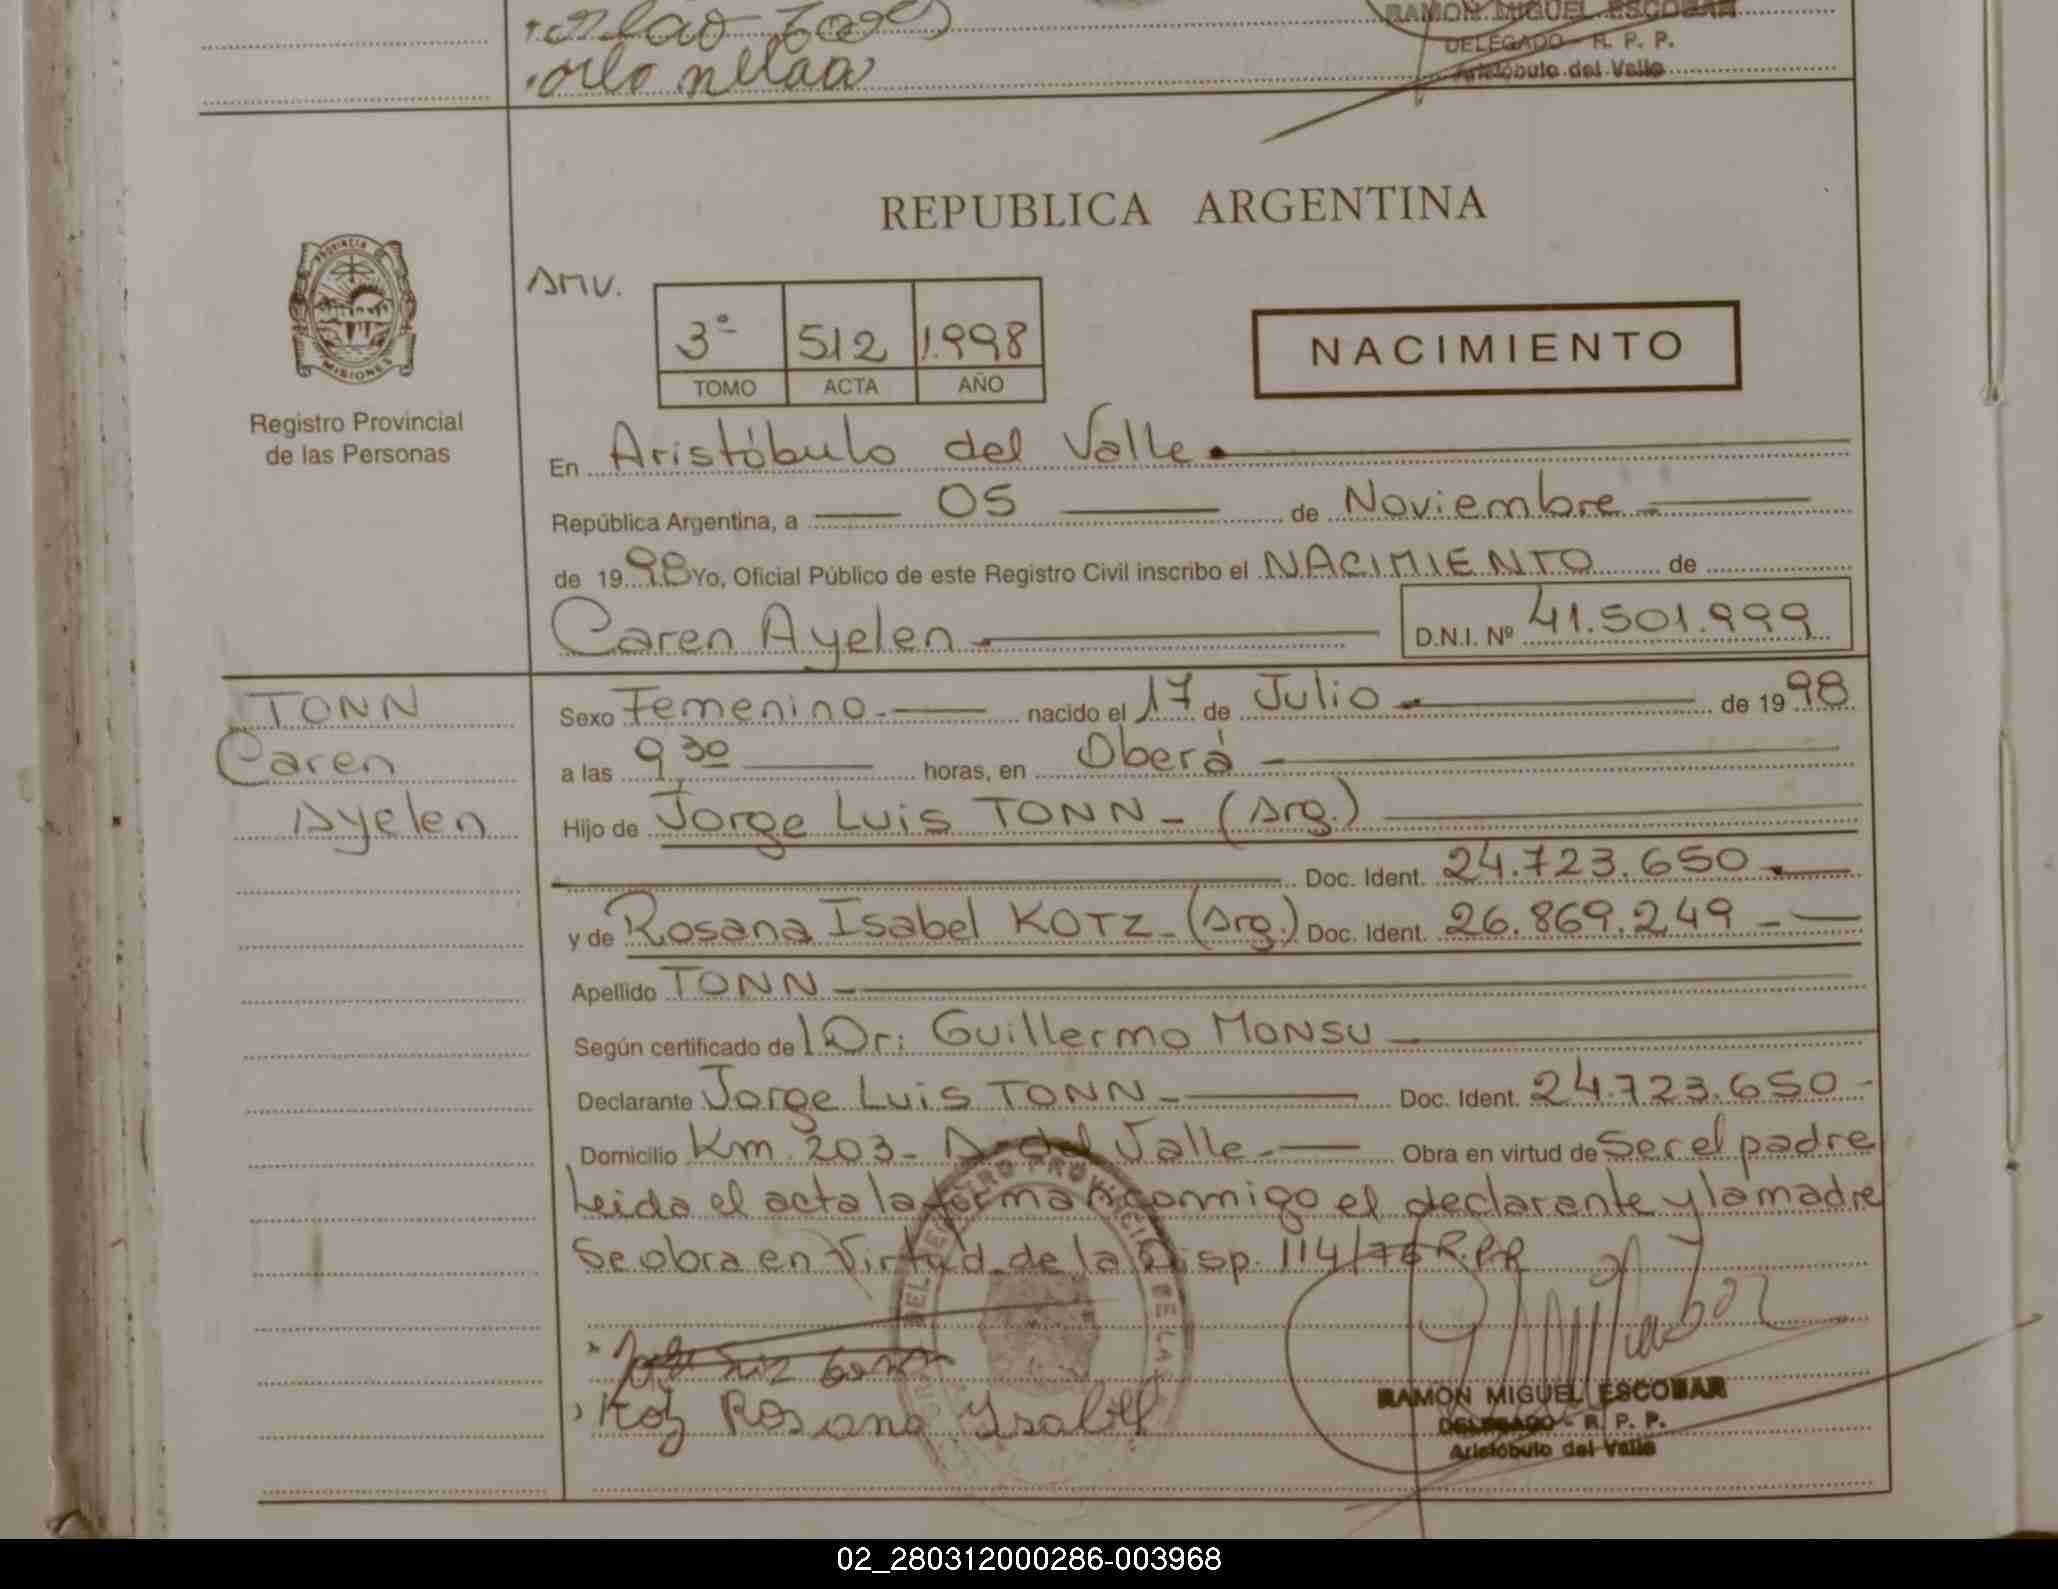 RAMON MIGUEL ESCOBAR
DELEGADO - R. P. P.
Aristóbulo del Valle
REPUBLICA ARGENTINA
PROVINCIA DE MISIONES
AMV.
3º 512 1.998
TOMO ACTA AÑO
NACIMIENTO
Registro Provincial
de las Personas
En Aristóbulo del Valle
República Argentina, a 05 de Noviembre
de 1998 Yo, Oficial Público de este Registro Civil inscribo el NACIMIENTO de
Caren Ayelen D.N.I. Nº 41.501.999
TONN
Caren
Ayelen
Sexo Femenino nacido el 17 de Julio de 1998
a las 9,30 horas, en Oberá
Hijo de Jorge Luis TONN - (Arg.)
Doc. Ident. 24.723.650
y de Rosana Isabel KOTZ - (Arg.) Doc. Ident. 26.869.249
Apellido TONN
Según certificado del Dr: Guillermo MONSU
Declarante Jorge Luis TONN Doc. Ident. 24.723.650
Domicilio Km 203 - A. del Valle Obra en virtud de Ser el padre
Leida el acta la forman conmigo el declarante y la madre
Se obra en Virtud de la Disp. 114/76 R.P.P.
Kotz Rosana Ysabel
RAMON MIGUEL ESCOBAR
DELEGADO - R. P. P.
Aristóbulo del Valle
02_280312000286-003968